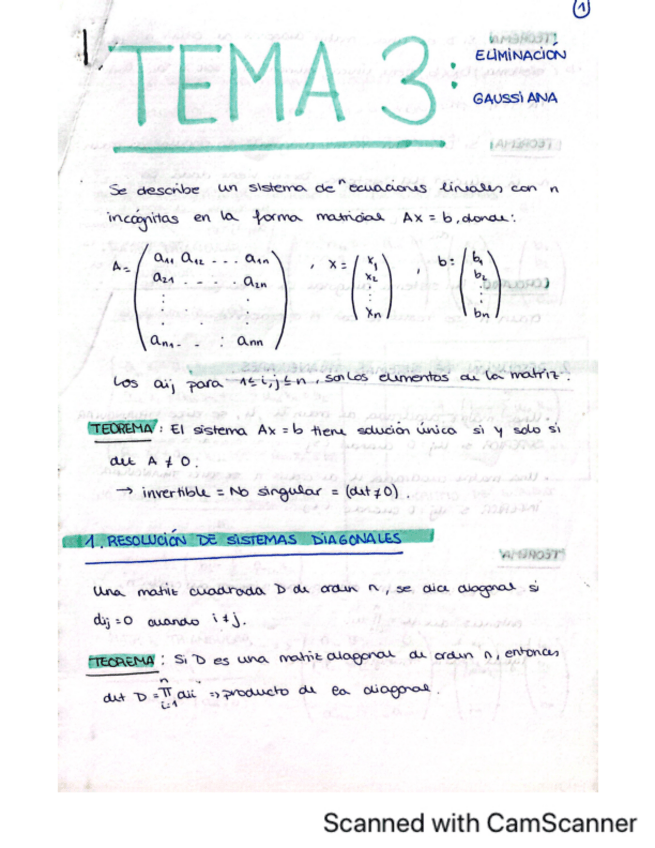 1
1.
TEMA 3:
ELIMINACIÓN
GAUSSIANA
Se describe un sistema de n ecuaciones lineales con n
incógnitas en la forma matricial Ax = b, donde:
A = ( a11 a12 ... a1n ) , x = ( x1 ) , b = ( b1 )
a21 . . . . a2n x2 b2
⋮ . ⋮ ⋮ ⋮
an1 . . : ann xn bn
Los aij para 1≤i,j≤n, son los elementos de la matriz.
TEOREMA: El sistema Ax = b tiene solución única si y solo si
det A ≠ 0.
→ invertible = No singular = (det ≠ 0).
1. RESOLUCIÓN DE SISTEMAS DIAGONALES
Una matriz cuadrada D de orden n, se dice diagonal si
dij = 0 cuando i ≠ j.
TEOREMA: Si D es una matriz diagonal de orden n, entonces
det D = ∏ⁿᵢ₌₁ dii => producto de la diagonal.
Scanned with CamScanner